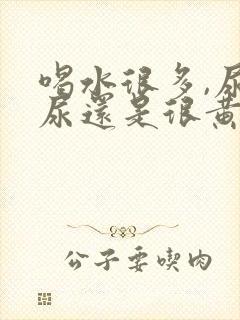 喝水很多,尿
尿還是很黃
公子要喫肉